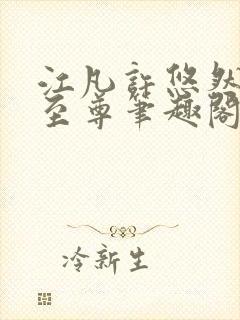 江凡許悠然
至尊笔趣閣
冷新生